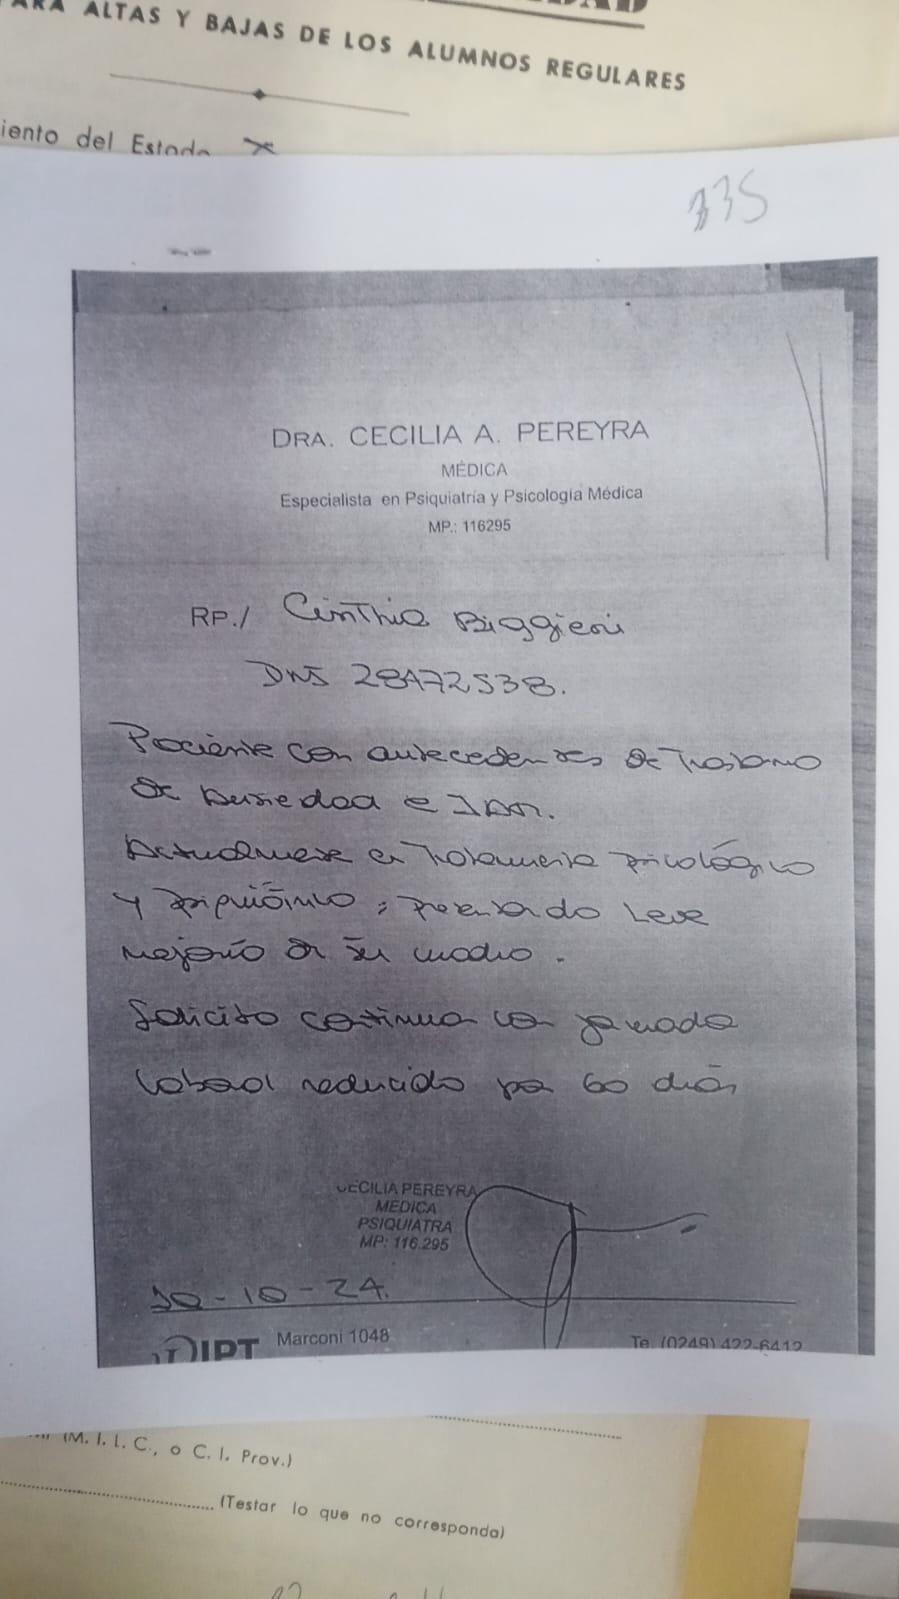 ARA ALTAS Y BAJAS DE LOS ALUMNOS REGULARES
iento del Estado
335
DRA. CECILIA A. PEREYRA
MÉDICA
Especialista en Psiquiatría y Psicología Médica
MP.: 116295
RP./ Cinthia Biggieri
DNI 28472538.
Paciente con antecedentes de Trastorno
de Ansiedad e
Actualmente en Tratamiento psicológico
y psiquiátrico, presentando leve
mejoría de su
Solicito continua con jornada
laboral reducida por 60 días
CECILIA PEREYRA
MEDICA
PSIQUIATRA
MP: 116.295
-10-24.
IPT Marconi 1048 Te. (0249) 422-6412
(M. I. L. C., o C. I. Prov.)
(Testar lo que no corresponda)